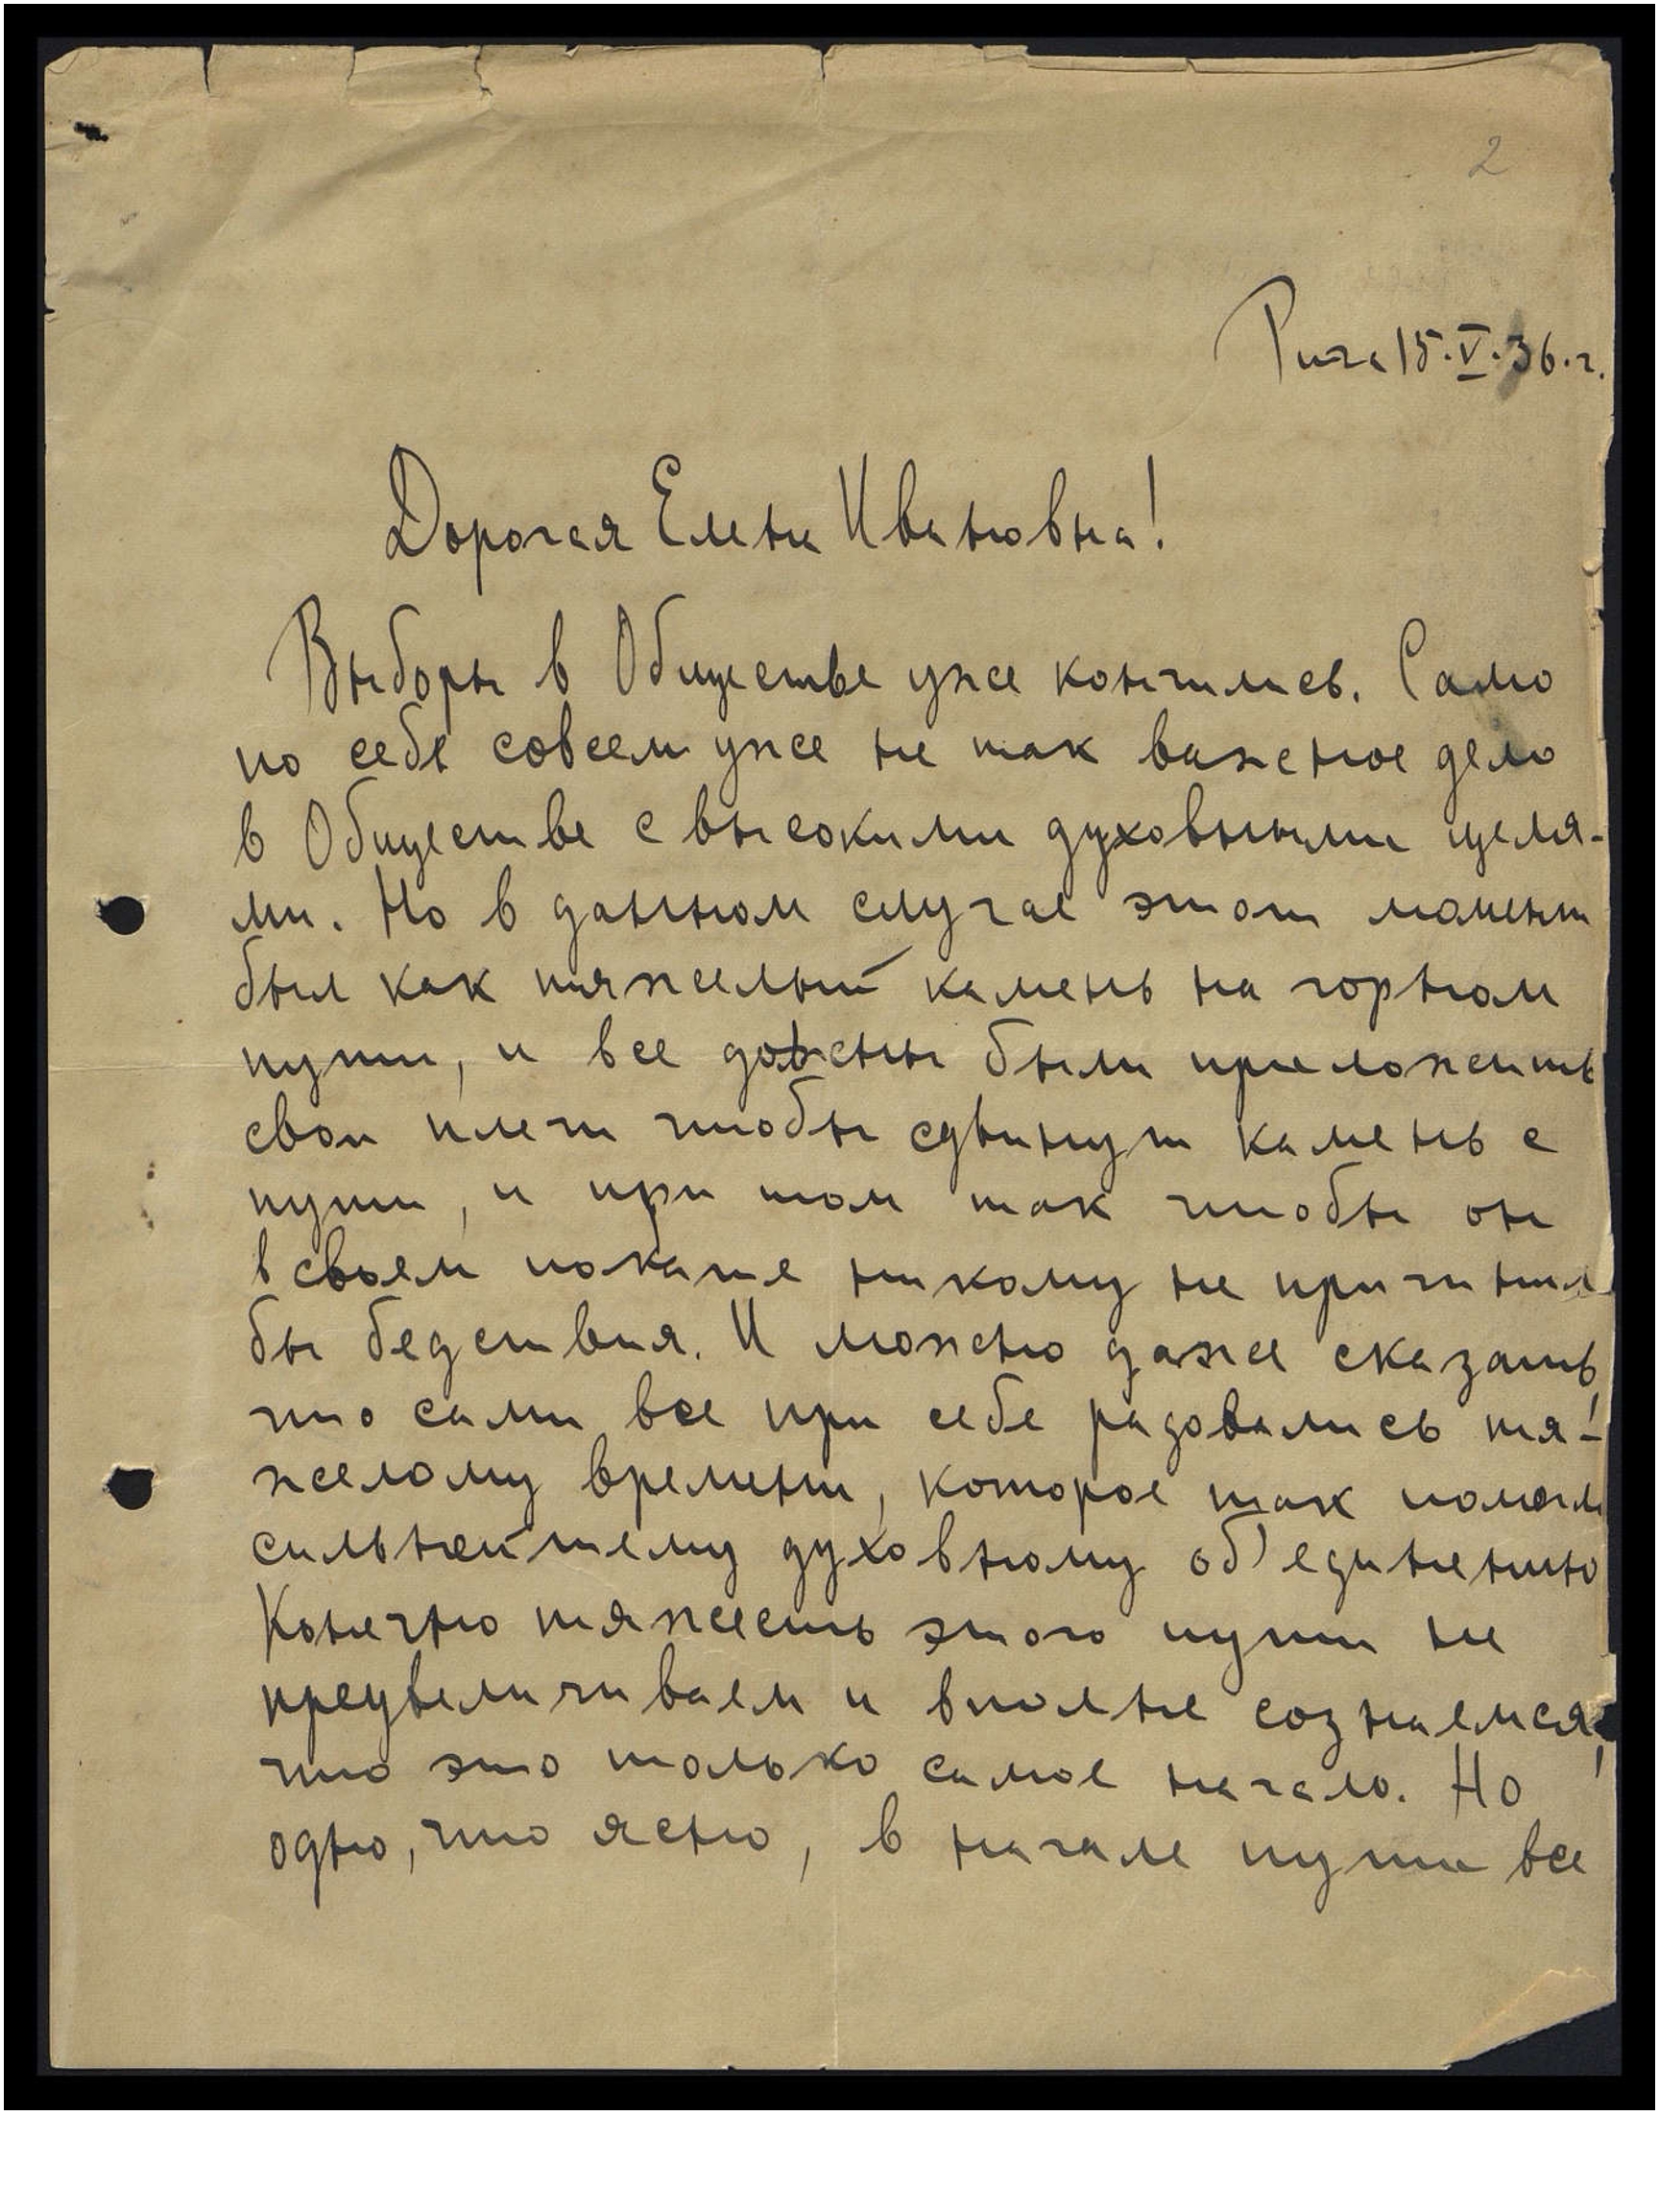 2
Рига 15.V.36.г.
Дорогая Елена Ивановна!
Выборы в Обществе уже кончились. Само
по себе совсем уже не так важное дело
в Обществе с высокими духовными целя-
ми. Но в данном случае этот момент
был как тяжелый камень на горном
пути, и все должны были приложить
свои плечи чтобы сдвинут камень с
пути, и при том так чтобы он
в своем покате никому не причинил
бы бедствия. И можно даже сказать,
что сами все при себе радовались тя-
желому времени, которое так помогло
сильнейшему духовному об'единению
Конечно тяжесть этого пути не
преувеличиваем и вполне сознаемся,
что это только самое начало. Но
одно, что ясно, в начале пути все